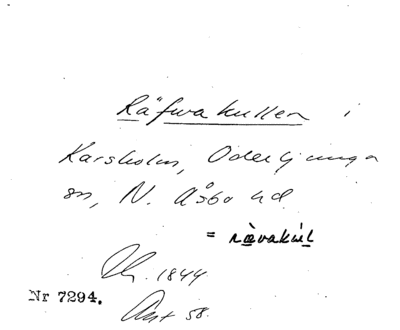 Räfwakullen i
Karsholm, Oderljunga
sn, N. Åsbo hd
= rävakúl
1844
Nr 7294.
58.